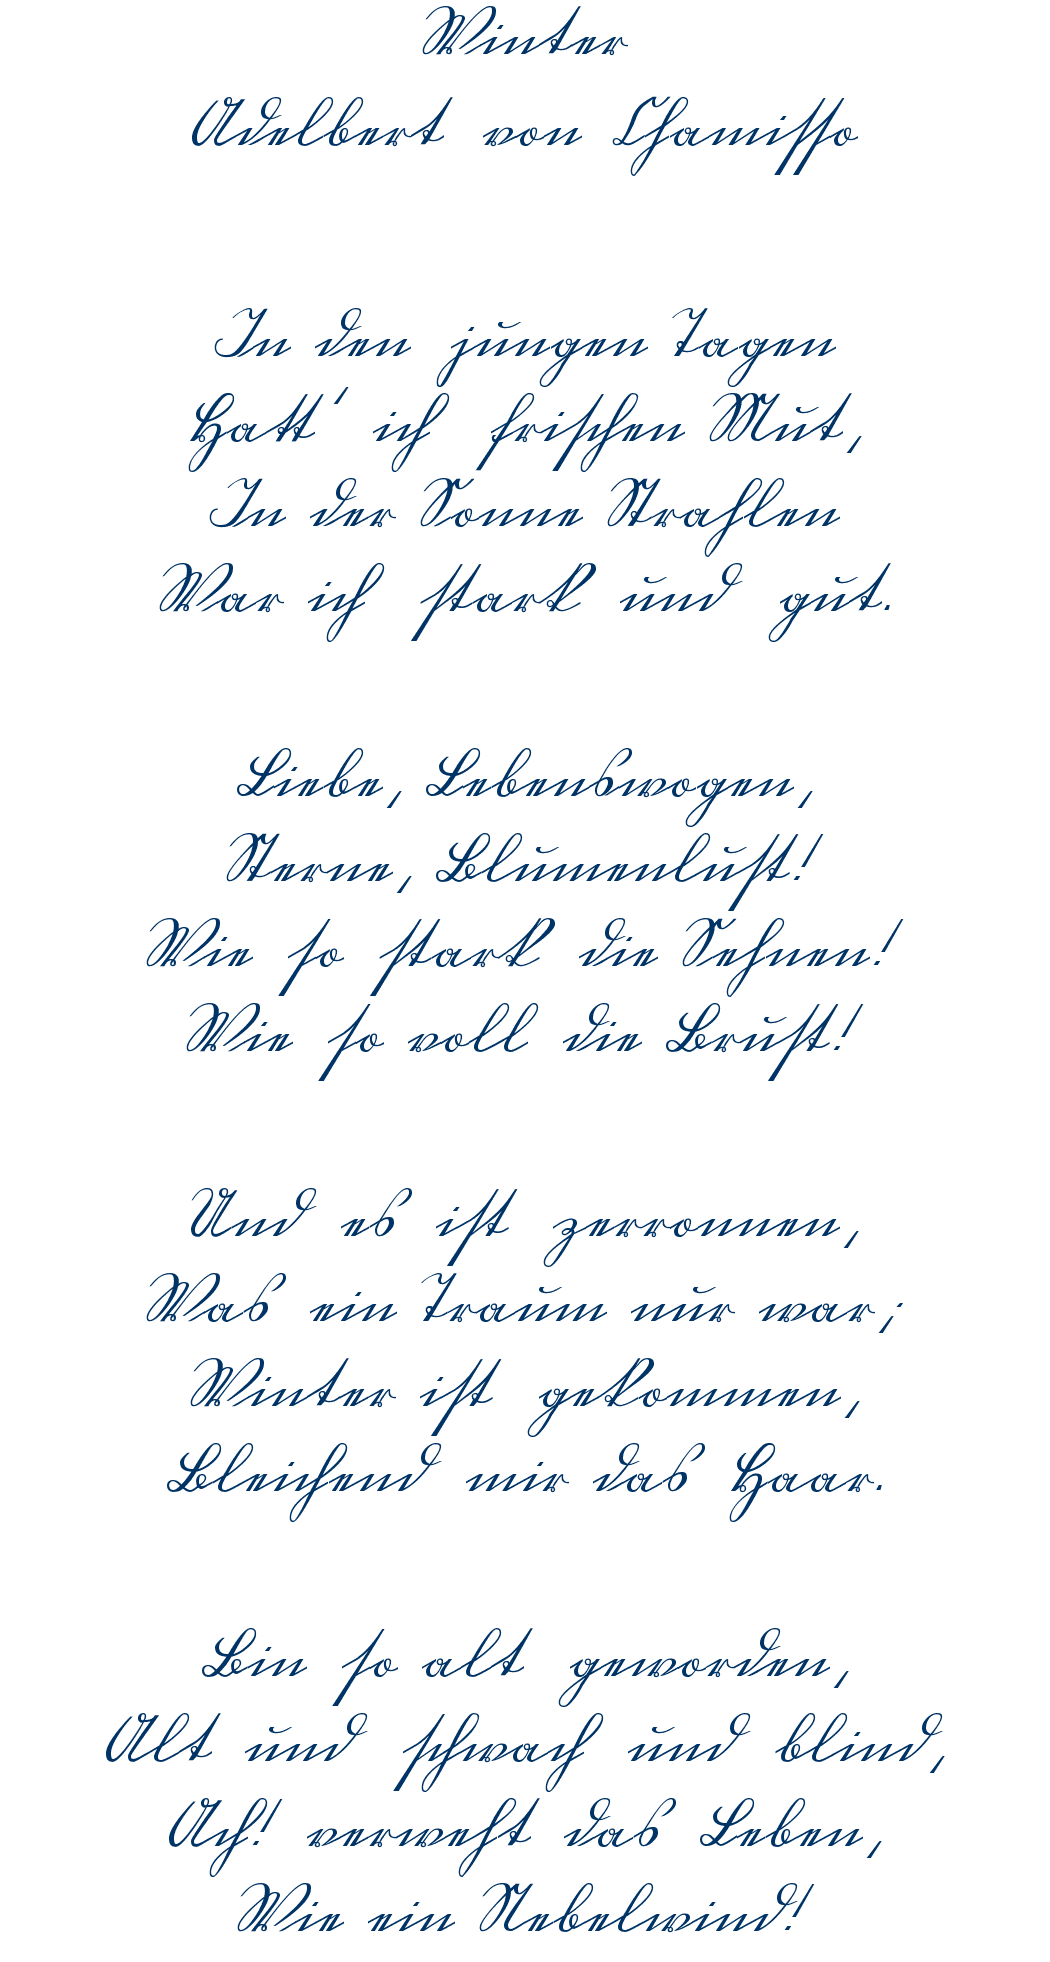 Winter
Adelbert von Chamisso
In den jungen Tagen
Hatt' ich frischen Mut,
In der Sonne Strahlen
War ich stark und gut.
Liebe, Lebenswogen,
Sterne, Blumenlust!
Wie so stark die Sehnen!
Wie so voll die Brust!
Und es ist zerronnen,
Was ein Traum nur war;
Winter ist gekommen,
Bleichend mir das Haar.
Bin so alt geworden,
Alt und schwach und blind,
Ach! verweht das Leben,
Wie ein Nebelwind!